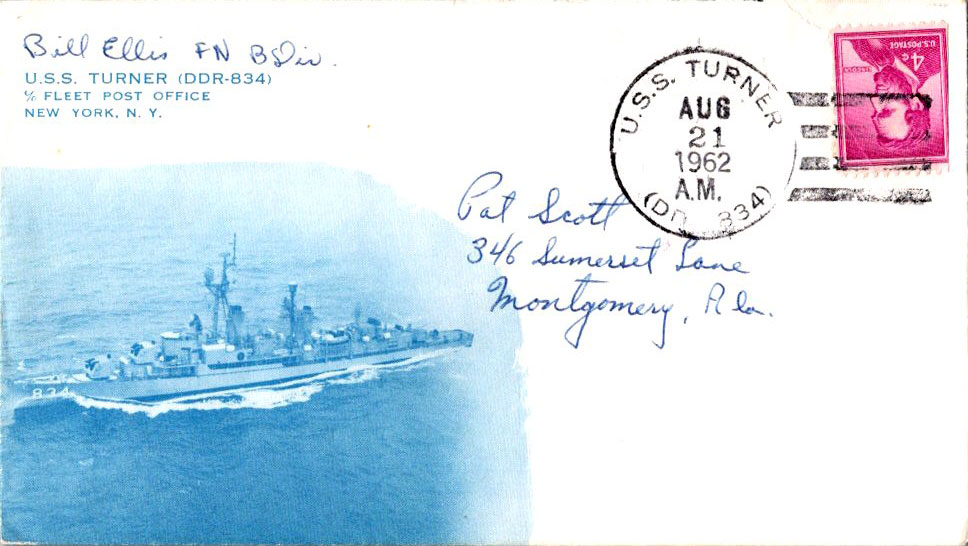 Bill Ellis FN B Div.
U.S.S. TURNER (DDR-834)
℅ FLEET POST OFFICE
NEW YORK, N. Y.
U.S.S. TURNER
AUG
21
1962
A.M.
(DD 834)
U.S. POSTAGE
4¢
LINCOLN
Pat Scott
346 Sumerset Lane
Montgomery, Ala.
834